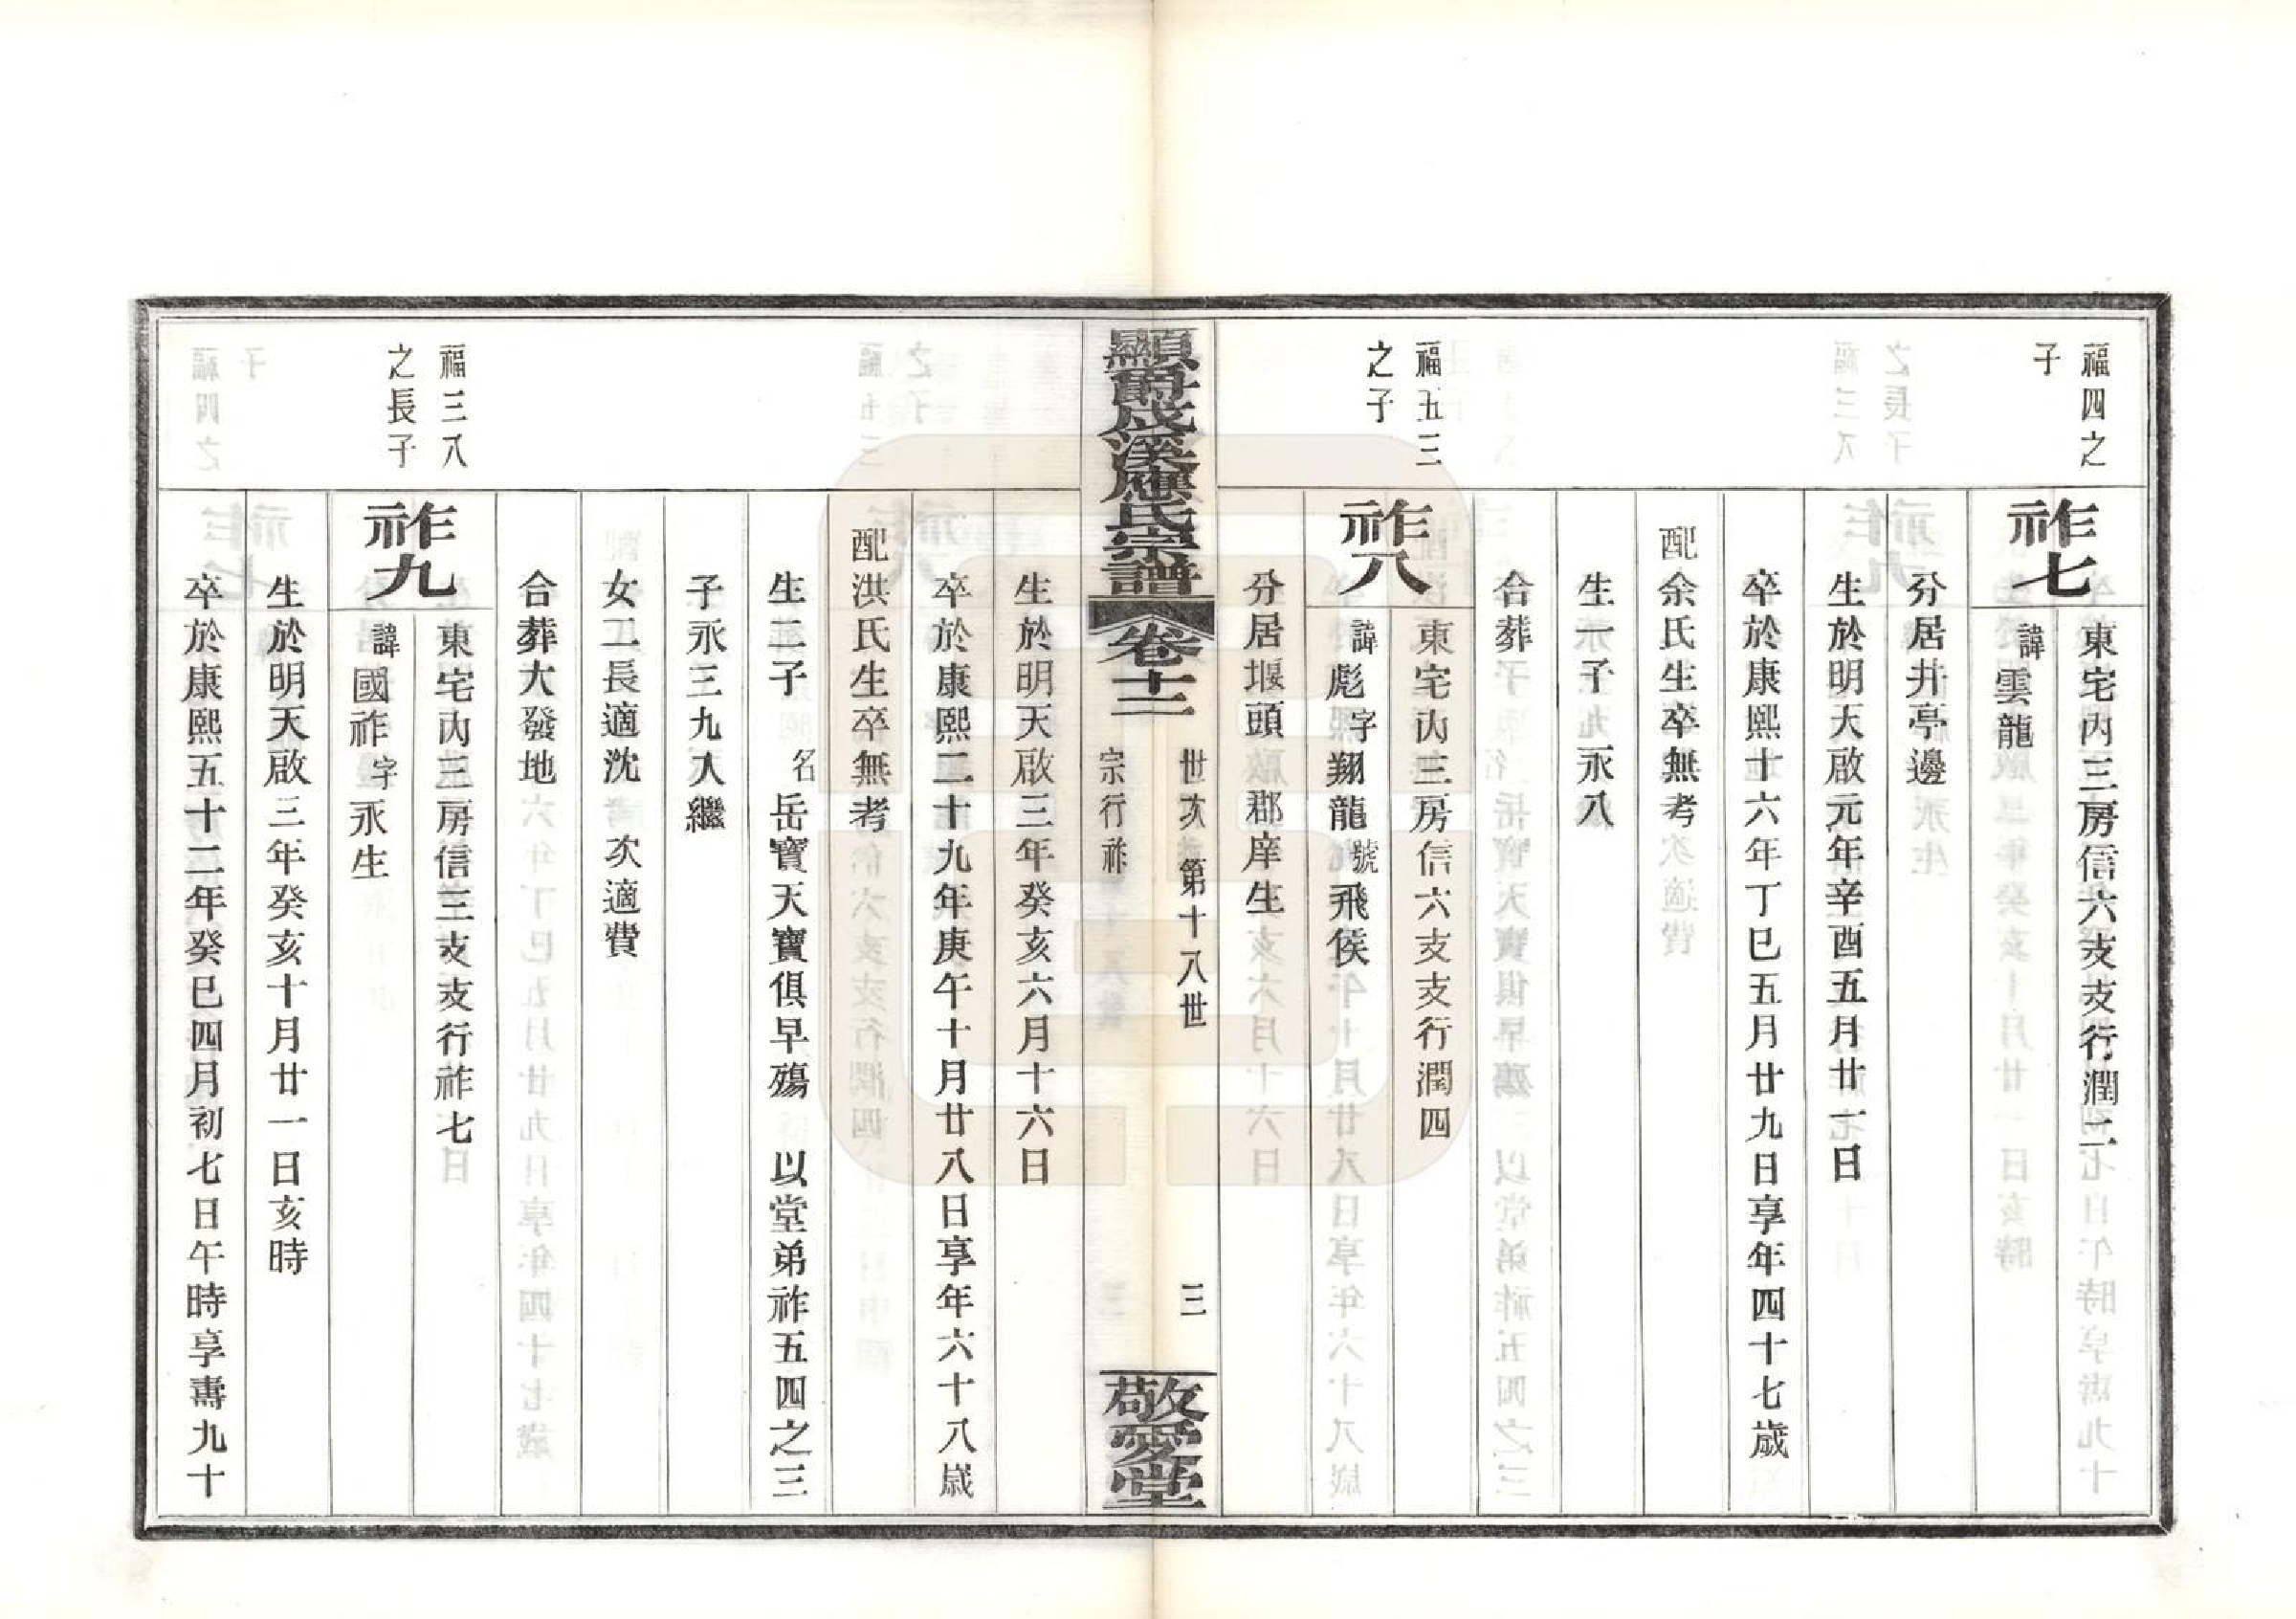 福四之
子
祚七
東宅內三房信六支支行潤二
諱雲龍
分居井亭邊
生於明天啟元年辛酉五月廿一日
卒於康熙十六年丁巳五月廿九日享年四十七歲
配余氏生卒無考
生一子永八
合葬
福五三
之子
祚八
東宅內三房信六支支行潤四
諱彪字翔龍號飛侯
分居堰頭郡庠生
顯爵戌溪應氏宗譜
卷十二
世次第十八世
宗行祚
三
敬愛堂
生於明天啟三年癸亥六月十六日
卒於康熙二十九年庚午十月廿八日享年六十八歲
配洪氏生卒無考
生二子名岳寶天寶俱早殤 以堂弟祚五四之三
子永三九入繼
女二長適沈 次適費
合葬大發地
福三八
之長子
祚九
東宅內三房信三支支行祚七
諱國祚字永生
生於明天啟三年癸亥十月廿一日亥時
卒於康熙五十二年癸巳四月初七日午時享壽九十